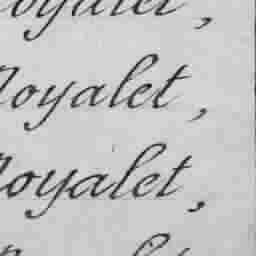 oyalet,
oyalet,
oyalet,